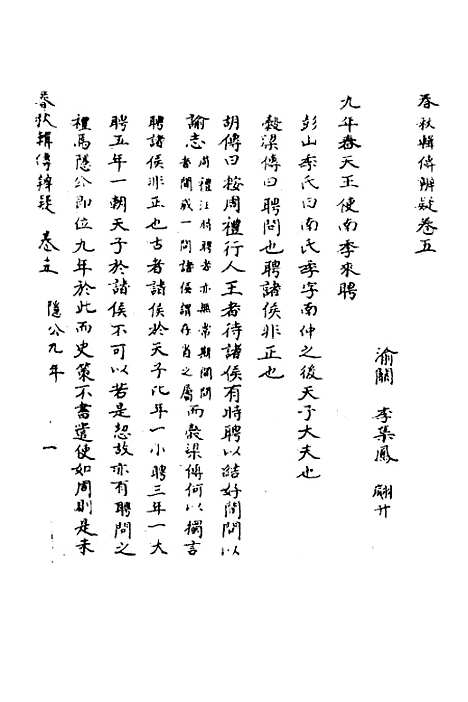 春秋輯傳辨疑卷五
渝關 李集鳳 翽升
九年春天王使南季來聘
彭山季氏曰南氏季字南仲之後天子大夫也
穀梁傳曰聘問也聘諸侯非正也
胡傳曰按周禮行人王者待諸侯有時聘以結好閒問以
諭志周禮注時聘者亦無常期閒問者閒歲一問諸侯謂存省之屬而穀梁傳何以獨言
聘諸侯非正也古者諸侯於天子比年一小聘三年一大
聘五年一朝天子於諸侯不可以若是恝故亦有聘問之
禮焉隱公即位九年於此而史策不書遣使如周則是未
春秋輯傳辨疑 卷五 隱公九年 一